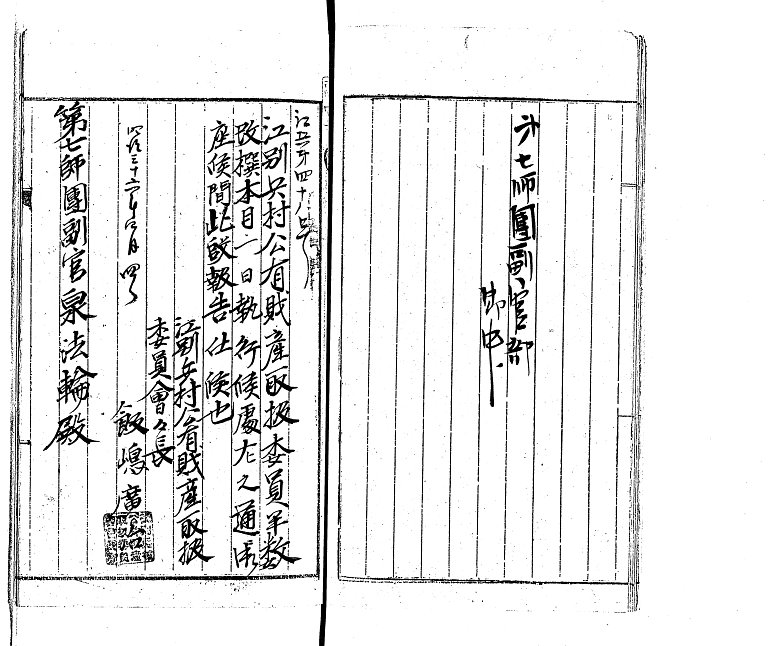 第七師團副官部
御中
江兵第四十八号
江別兵村公有財産取扱委員半数
改撰本月一日執行候處左之通当
座候間此段報告仕候也
江別兵村公有財産取扱
委員會々長
明治三十六年六月四日
飯嶋廣
第七師團副官泉法輪殿